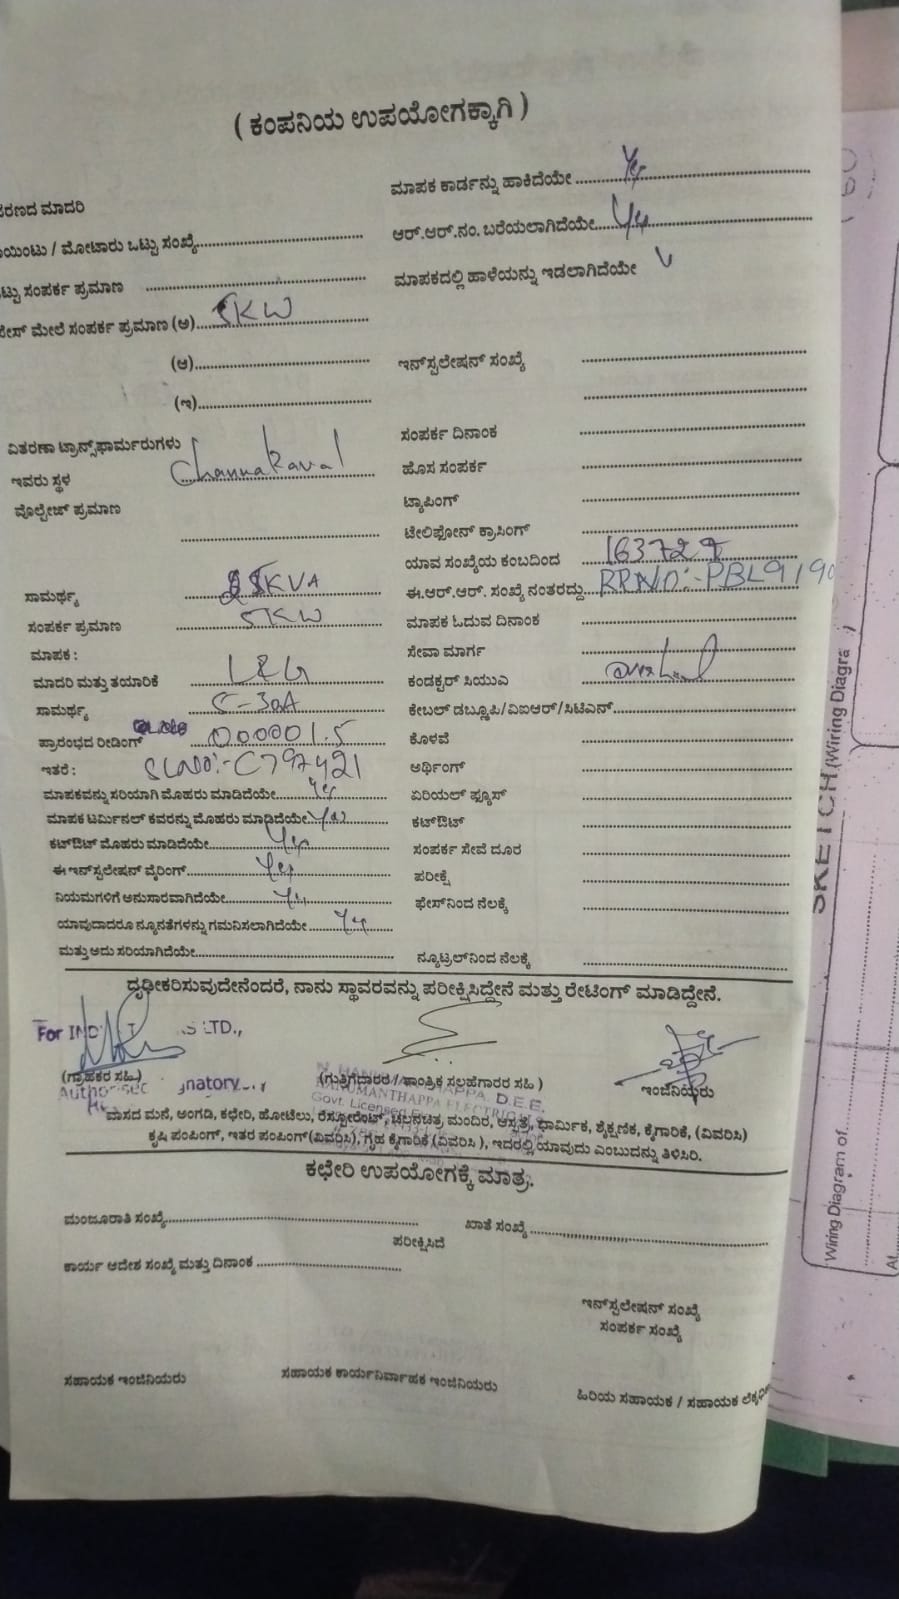 ( ಕಂಪನಿಯ ಉಪಯೋಗಕ್ಕಾಗಿ )
ಮಾಪಕ ಕಾರ್ಡನ್ನು ಹಾಕಿದೆಯೇ
ರಣದ ಮಾದರಿ
ಆರ್.ಆರ್.ನಂ. ಬರೆಯಲಾಗಿದೆಯೇ
ಯಿಂಟು / ಮೋಟಾರು ಒಟ್ಟು ಸಂಖ್ಯೆ
ಮಾಪಕದಲ್ಲಿ ಹಾಳೆಯನ್ನು ಇಡಲಾಗಿದೆಯೇ
ಟ್ಟು ಸಂಪರ್ಕ ಪ್ರಮಾಣ
ಮೇಲೆ ಸಂಪರ್ಕ ಪ್ರಮಾಣ (ಅ) 5KW
(ಆ) ಇನ್‌ಸ್ಟಲೇಷನ್ ಸಂಖ್ಯೆ
(ಇ)
ವಿತರಣಾ ಟ್ರಾನ್ಸ್‌ಫಾರ್ಮರುಗಳು ಸಂಪರ್ಕ ದಿನಾಂಕ
ಇವರು ಸ್ಥಳ Channakaval ಹೊಸ ಸಂಪರ್ಕ
ವೊಲ್ಟೇಜ್ ಪ್ರಮಾಣ ಟ್ಯಾಪಿಂಗ್
ಟೇಲಿಫೋನ್ ಕ್ರಾಸಿಂಗ್
ಯಾವ ಸಂಖ್ಯೆಯ ಕಂಬದಿಂದ 163727
ಸಾಮರ್ಥ್ಯ 25KVA ಈ.ಆರ್.ಆರ್. ಸಂಖ್ಯೆ ನಂತರದ್ದು RRNO:-PBL9190
ಸಂಪರ್ಕ ಪ್ರಮಾಣ 5KW ಮಾಪಕ ಓದುವ ದಿನಾಂಕ
ಮಾಪಕ : ಸೇವಾ ಮಾರ್ಗ
ಮಾದರಿ ಮತ್ತು ತಯಾರಿಕೆ L&G ಕಂಡಕ್ಟರ್ ಸಿಯುವಿ
ಸಾಮರ್ಥ್ಯ 5-30A ಕೇಬಲ್ ಡಬ್ಲ್ಯೂಪಿ/ವಿಐಆರ್/ಸಿಟಿಎನ್
ಪ್ರಾರಂಭದ ರೀಡಿಂಗ್ 000001.5 ಕೊಳವೆ
ಇತರೆ : SLNO:-C797421 ಅರ್ಥಿಂಗ್
ಮಾಪಕವನ್ನು ಸರಿಯಾಗಿ ಮೊಹರು ಮಾಡಿದೆಯೇ Yes ಏರಿಯಲ್ ಫ್ಯೂಸ್
ಮಾಪಕ ಟರ್ಮಿನಲ್ ಕವರನ್ನು ಮೊಹರು ಮಾಡಿದೆಯೇ Yes ಕಟ್‌ಔಟ್
ಕಟ್‌ಔಟ್ ಮೊಹರು ಮಾಡಿದೆಯೇ Yes ಸಂಪರ್ಕ ಸೇವೆ ದೂರ
ಈ ಇನ್‌ಸ್ಟಲೇಷನ್ ವೈರಿಂಗ್ Yes ಪರೀಕ್ಷೆ
ನಿಯಮಗಳಿಗೆ ಅನುಸಾರವಾಗಿದೆಯೇ Yes ಫೇಸ್‌ನಿಂದ ನೆಲಕ್ಕೆ
ಯಾವುದಾದರೂ ನ್ಯೂನತೆಗಳನ್ನು ಗಮನಿಸಲಾಗಿದೆಯೇ Yes
ಮತ್ತು ಅದು ಸರಿಯಾಗಿದೆಯೇ ನ್ಯೂಟ್ರಲ್‌ನಿಂದ ನೆಲಕ್ಕೆ
ದೃಢೀಕರಿಸುವುದೇನೆಂದರೆ, ನಾನು ಸ್ಥಾವರವನ್ನು ಪರೀಕ್ಷಿಸಿದ್ದೇನೆ ಮತ್ತು ರೇಟಿಂಗ್ ಮಾಡಿದ್ದೇನೆ.
For LTD.,
(ಗ್ರಾಹಕರ ಸಹಿ) (ಗುತ್ತಿಗೆದಾರರ / ತಾಂತ್ರಿಕ ಸಲಹೆಗಾರರ ಸಹಿ ) ಇಂಜಿನಿಯರು
ವಾಸದ ಮನೆ, ಅಂಗಡಿ, ಕಛೇರಿ, ಹೋಟೆಲು, ರೆಸ್ಟೋರೆಂಟ್, ಚಲನಚಿತ್ರ ಮಂದಿರ, ಆಸ್ಪತ್ರೆ, ಧಾರ್ಮಿಕ, ಶೈಕ್ಷಣಿಕ, ಕೈಗಾರಿಕೆ, (ವಿವರಿಸಿ)
ಕೃಷಿ ಪಂಪಿಂಗ್, ಇತರ ಪಂಪಿಂಗ್(ವಿವರಿಸಿ), ಗೃಹ ಕೈಗಾರಿಕೆ (ವಿವರಿಸಿ ), ಇದರಲ್ಲಿ ಯಾವುದು ಎಂಬುದನ್ನು ತಿಳಿಸಿರಿ.
ಕಛೇರಿ ಉಪಯೋಗಕ್ಕೆ ಮಾತ್ರ.
ಮಂಜೂರಾತಿ ಸಂಖ್ಯೆ ಖಾತೆ ಸಂಖ್ಯೆ
ಪರೀಕ್ಷಿಸಿದೆ
ಕಾರ್ಯ ಆದೇಶ ಸಂಖ್ಯೆ ಮತ್ತು ದಿನಾಂಕ
ಇನ್‌ಸ್ಟಲೇಷನ್ ಸಂಖ್ಯೆ
ಸಂಪರ್ಕ ಸಂಖ್ಯೆ
ಸಹಾಯಕ ಇಂಜಿನಿಯರು ಸಹಾಯಕ ಕಾರ್ಯನಿರ್ವಾಹಕ ಇಂಜಿನಿಯರು ಹಿರಿಯ ಸಹಾಯಕ / ಸಹಾಯಕ
SKETCH (Wiring Diagra )
Wiring Diagram of